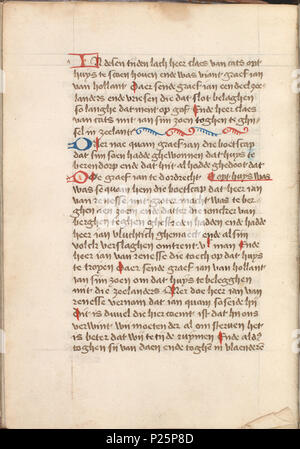 In desen tiden lach heer claes van cats opt
huys te scoenhouen ende was viant graef ian
van hollant Daer sende graef ian een deel zee
landers ende vriesen die dat slot belaghen
so langhe datment op gaf Ende heer claes
van cats mit ian sijn zoen toghen te ghi
sel in zeelant
Hier nae quam graef ian die boetscap
dat sijn soen hadde ghewonnen dat huys te
berendorp ende dat hijt al hadde ghedoot dat
Doe graef ian te dordrecht opt huys was
was so quam hem die boetscap dat heer ian
van renesse mit groter macht was te ber
ghen aen zoen ende datter die poorter van
berghen teghen ghestreden hadden ende hadde
heer ian vluchtich ghemaect ende al sijn
volck verslaghen omtrent vc man Ende
heer ian van renesse die toech op dat huys
te tropen Daer sende graef ian van hollant
ian sijn zoen om dat huys te belegghen
mit die zeelanders Mer doe heer ian van
renesse vernam dat ian quam so seide hi
Dit is duuel die hier coemt ist dat hi ons
verwint wij moeten der al om steruen het
is beter dat wij te tide rumen Ende aldus
toghen sij van daen ende toghen in vlaenderen
alamy
Image ID: P25P8D
www.alamy.com